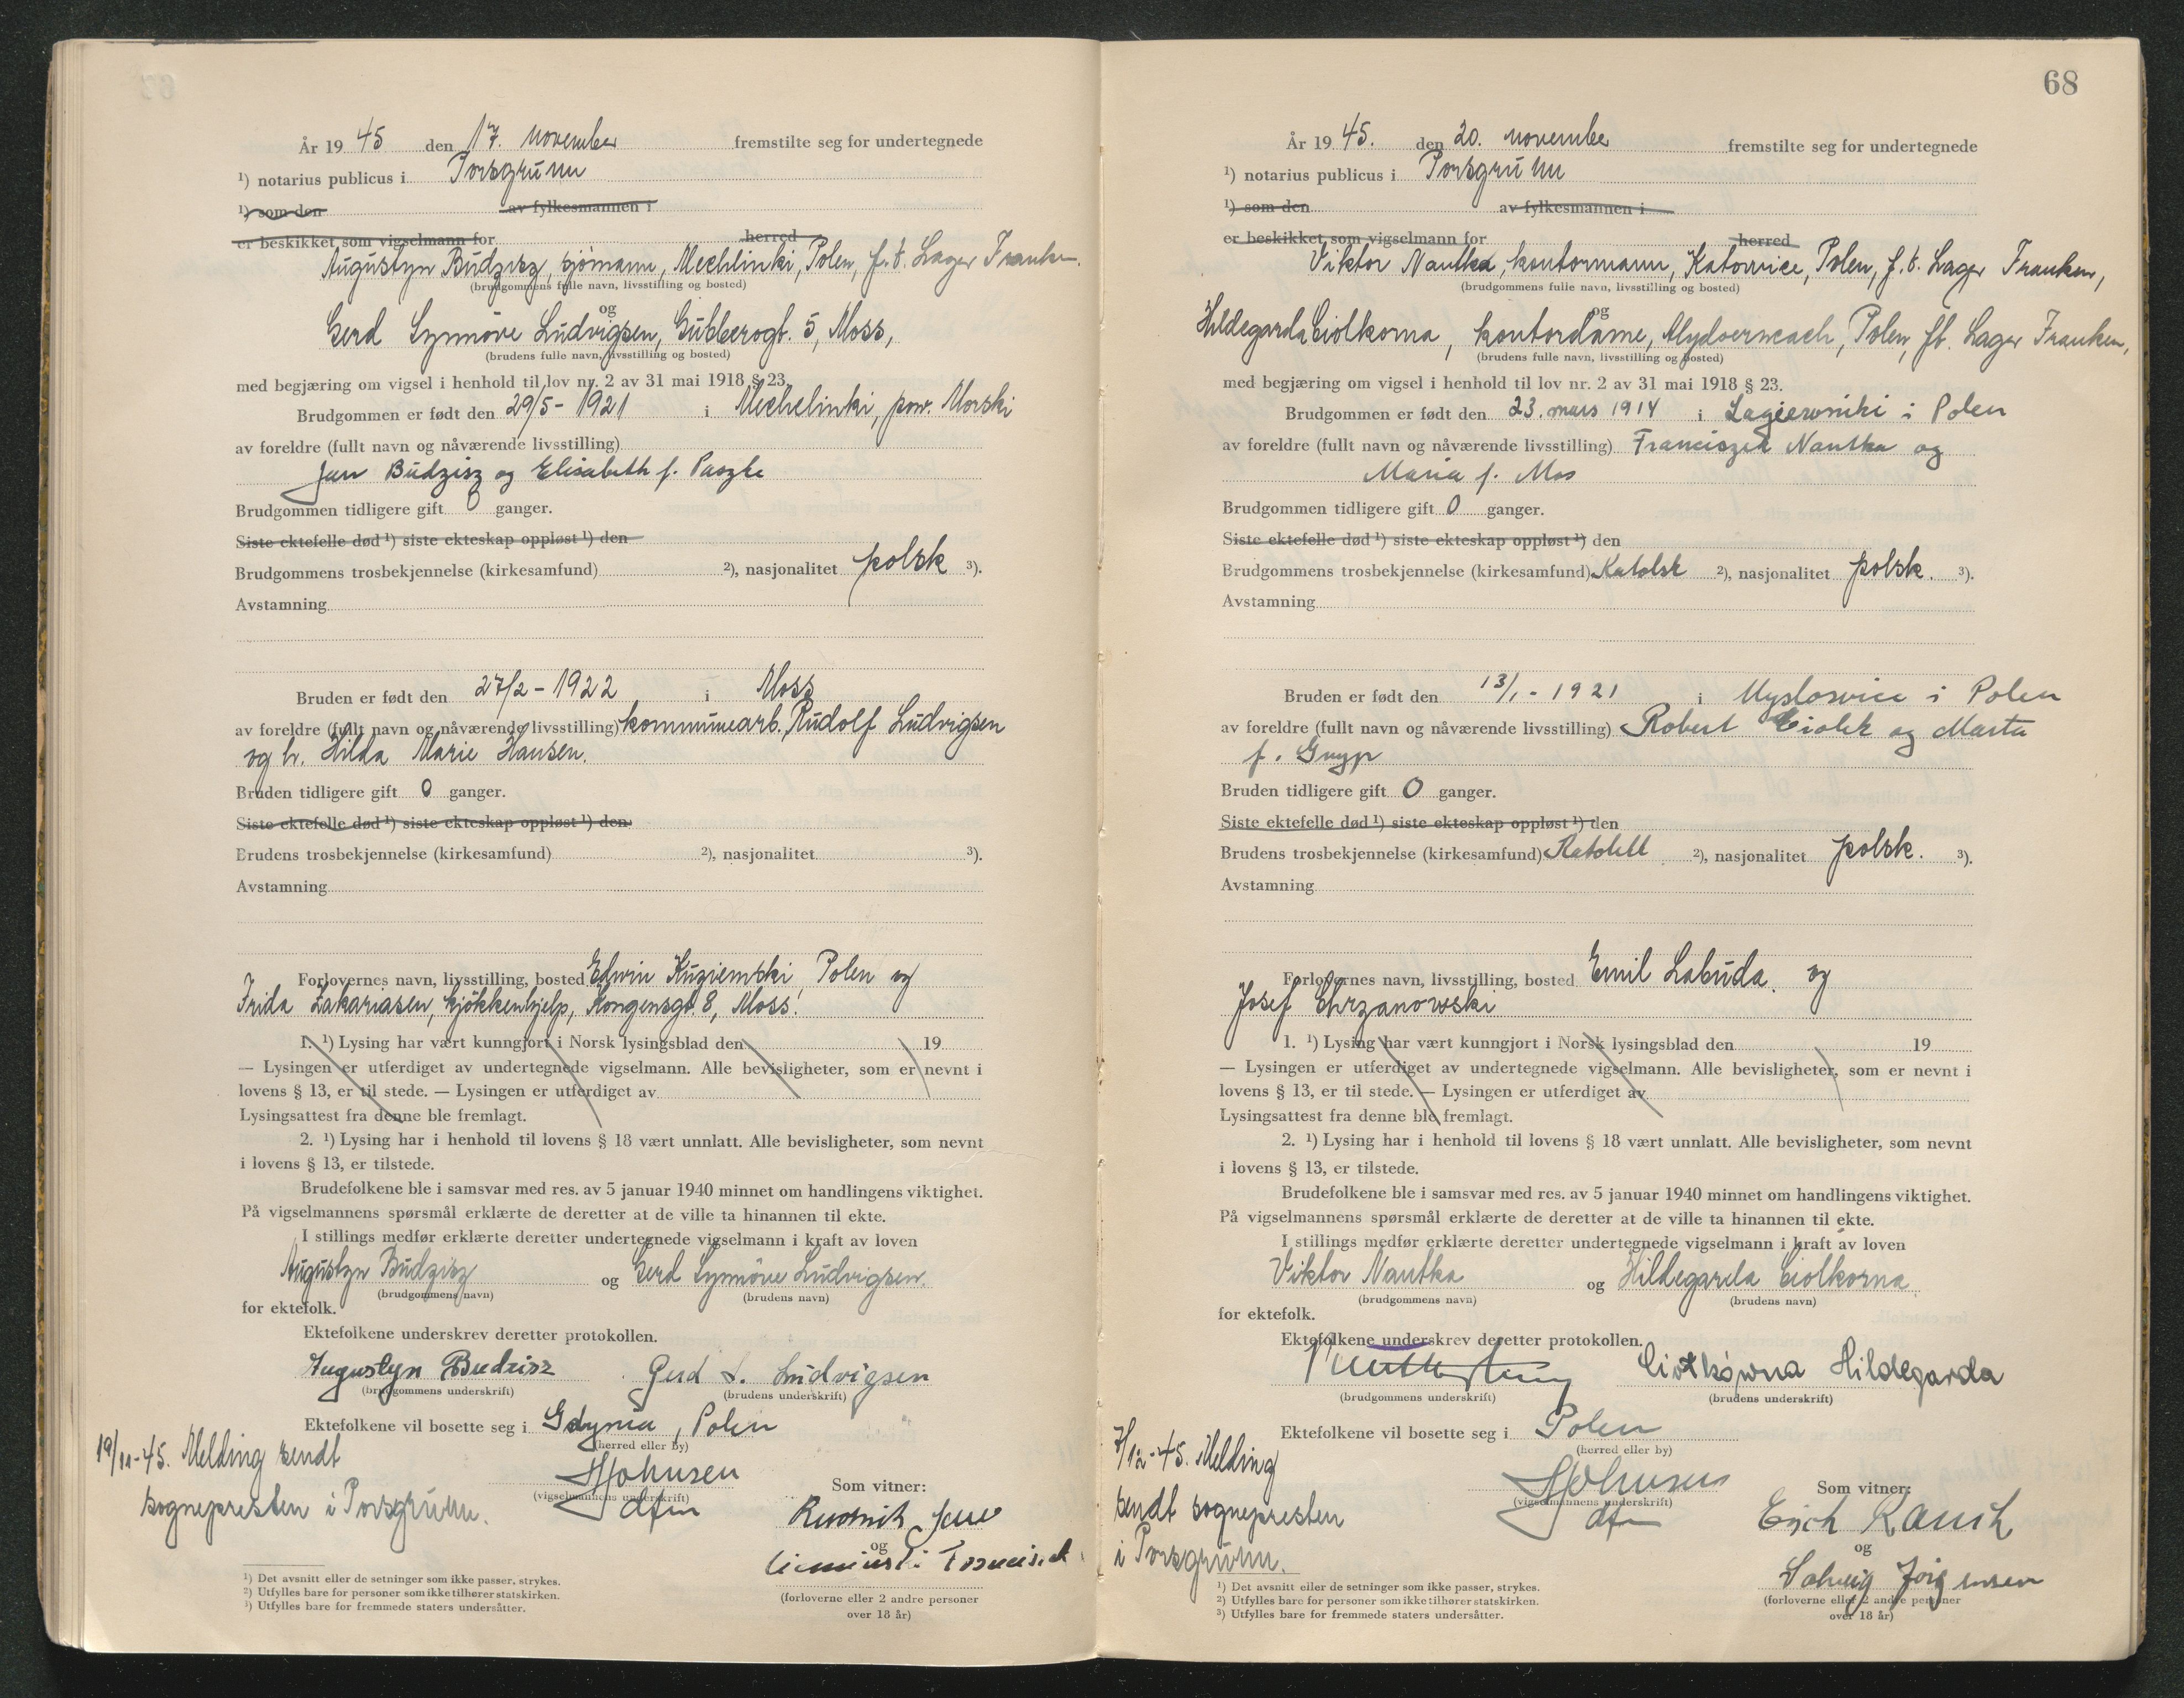 År 19 45 den 17. november fremstilte seg for undertegnede
¹) notarius publicus i Porsgrunn
¹) som den av fylkesmannen i
er beskikket som vigselmann for herred
Augustyn Budzisz, sjömann, Mechlinki, Polen, f.t. Lager Franken.
(brudgommens fulle navn, livsstilling og bosted)
og
Gerd Synnöve Ludvigsen, Gubberogt. 5, Moss,
(brudens fulle navn, livsstilling og bosted)
med begjæring om vigsel i henhold til lov nr. 2 av 31 mai 1918 § 23.
Brudgommen er født den 29/5 - 1921 i Mechelinki, pow. Morski
av foreldre (fullt navn og nåværende livsstilling)
Jan Budzisz og Elisabeth f. Paszke
Brudgommen tidligere gift 0 ganger.
Siste ektefelle død ¹) siste ekteskap oppløst ¹) den
Brudgommens trosbekjennelse (kirkesamfund) ²), nasjonalitet polsk ³).
Avstamning
Bruden er født den 27/2 - 1922 i Moss
av foreldre (fullt navn og nåværende livsstilling) kommunearb. Rudolf Ludvigsen
og h. Hilda Marie Hansen.
Bruden tidligere gift 0 ganger.
Siste ektefelle død ¹) siste ekteskap oppløst ¹) den
Brudens trosbekjennelse (kirkesamfund) ²), nasjonalitet ³).
Avstamning
Forlovernes navn, livsstilling, bosted Edwin Kuziemski, Polen og
Frida Zakariasen, kjökkenhjelp, Kongensgt. 8, Moss.
1. ¹) Lysing har vært kunngjort i Norsk lysingsblad den 19
— Lysingen er utferdiget av undertegnede vigselmann. Alle bevisligheter, som er nevnt i
lovens § 13, er til stede. — Lysingen er utferdiget av
Lysingsattest fra denne ble fremlagt.
2. ¹) Lysing har i henhold til lovens § 18 vært unnlatt. Alle bevisligheter, som nevnt
i lovens § 13, er tilstede.
Brudefolkene ble i samsvar med res. av 5 januar 1940 minnet om handlingens viktighet.
På vigselmannens spørsmål erklærte de deretter at de ville ta hinannen til ekte.
I stillings medfør erklærte deretter undertegnede vigselmann i kraft av loven
Augustyn Budzisz og Gerd Synnöve Ludvigsen.
(brudgommens navn) (brudens navn)
for ektefolk.
Ektefolkene underskrev deretter protokollen.
Augustyn Budzisz Gerd S. Ludvigsen
(brudgommens underskrift) (brudens underskrift)
Ektefolkene vil bosette seg i Gdynia, Polen
(herred eller by)
19/11-45. Melding sendt
sognepresten i Porsgrunn.
Johnsen
(vigselmannens underskrift)
dfm
Som vitner:
og
(forloverne eller 2 andre personer
over 18 år)
¹) Det avsnitt eller de setninger som ikke passer, strykes.
²) Utfylles bare for personer som ikke tilhører statskirken.
³) Utfylles bare for fremmede staters undersåtter.
68
År 19 45. den 20. november fremstilte seg for undertegnede
¹) notarius publicus i Porsgrunn
¹) som den av fylkesmannen i
er beskikket som vigselmann for herred
Viktor Nantka, kontormann, Katowice, Polen, f.t. Lager Franken,
(brudgommens fulle navn, livsstilling og bosted)
og
Hildegarda Ciolkorna, kontordame, Polen, ft. Lager Franken,
(brudens fulle navn, livsstilling og bosted)
med begjæring om vigsel i henhold til lov nr. 2 av 31 mai 1918 § 23.
Brudgommen er født den 23. mars 1914 i Lagiewniki i Polen
av foreldre (fullt navn og nåværende livsstilling) Franciszek Nantka og
Maria f. Mos
Brudgommen tidligere gift 0 ganger.
Siste ektefelle død ¹) siste ekteskap oppløst ¹) den
Brudgommens trosbekjennelse (kirkesamfund) Katolsk ²), nasjonalitet polsk. ³).
Avstamning
Bruden er født den 13/1 - 1921 i Myslowice i Polen
av foreldre (fullt navn og nåværende livsstilling) Robert Ciolek og Marta
f. Gnyp
Bruden tidligere gift 0 ganger.
Siste ektefelle død ¹) siste ekteskap oppløst ¹) den
Brudens trosbekjennelse (kirkesamfund) ²), nasjonalitet polsk. ³).
Avstamning
Forlovernes navn, livsstilling, bosted Emil Labuda. og
Josef Chrzanowski
1. ¹) Lysing har vært kunngjort i Norsk lysingsblad den 19
— Lysingen er utferdiget av undertegnede vigselmann. Alle bevisligheter, som er nevnt i
lovens § 13, er til stede. — Lysingen er utferdiget av
Lysingsattest fra denne ble fremlagt.
2. ¹) Lysing har i henhold til lovens § 18 vært unnlatt. Alle bevisligheter, som nevnt
i lovens § 13, er tilstede.
Brudefolkene ble i samsvar med res. av 5 januar 1940 minnet om handlingens viktighet.
På vigselmannens spørsmål erklærte de deretter at de ville ta hinannen til ekte.
I stillings medfør erklærte deretter undertegnede vigselmann i kraft av loven
Viktor Nantka og Hildegarda Ciolkorna
(brudgommens navn) (brudens navn)
for ektefolk.
Ektefolkene underskrev deretter protokollen.
Ciołkówna Hildegarda
(brudgommens underskrift) (brudens underskrift)
Ektefolkene vil bosette seg i Polen
(herred eller by)
7/12-45. Melding
sendt sognepresten
i Porsgrunn.
Johnsen
(vigselmannens underskrift)
dfm
Som vitner:
Erich Rauch
og
Solveig Jörgensen
(forloverne eller 2 andre personer
over 18 år)
¹) Det avsnitt eller de setninger som ikke passer, strykes.
²) Utfylles bare for personer som ikke tilhører statskirken.
³) Utfylles bare for fremmede staters undersåtter.